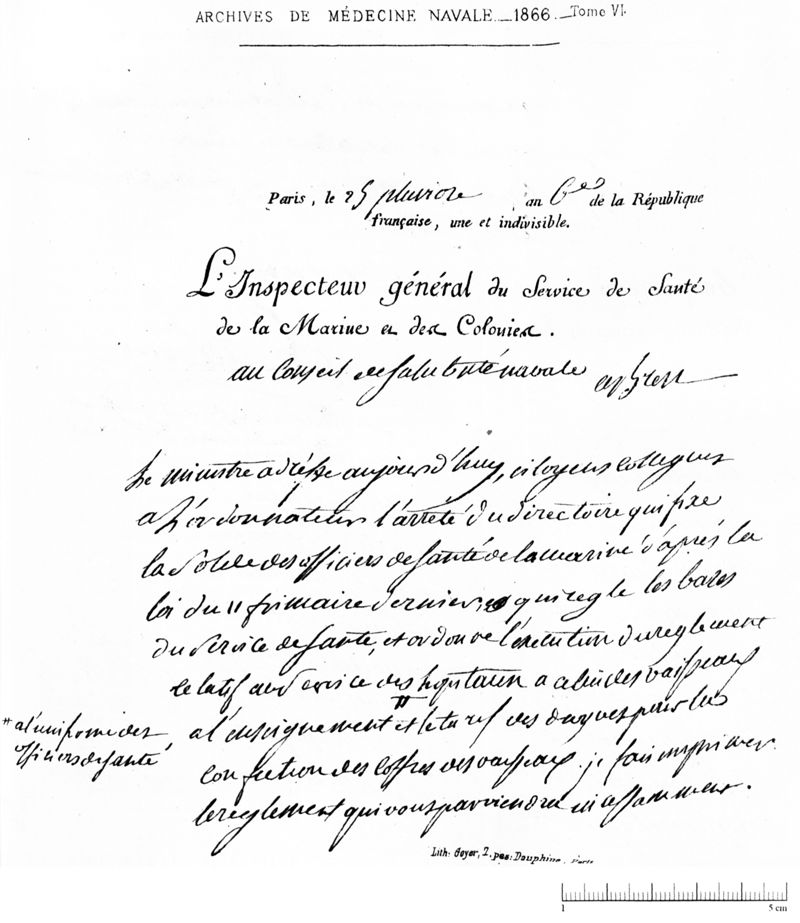 ARCHIVES DE MÉDECINE NAVALE._1866._Tome VI.
Paris, le 25 pluviose an 6es de la République
française, une et indivisible.
L'Inspecteur général du Service de Santé
de la Marine et des Colonies.
au Conseil de salubrité navale a Brest
Le ministre adresse aujourd'huy, citoyens collegues
a L'ordonnateur l'arrêté du directoire qui fixe
la solde des officiers de santé de la marine d'après la
loi du 11 frimaire dernier qui regle les bases
du service de santé, et ordonne l'execution du reglement
relatif au service des hopitaux a celui des vaisseaux
a l'enseignement et le tarif des drogues pour la
confection des coffres des vaisseaux. je fais imprimer
le reglement qui vous parviendra incessamment.
# a l'uniforme des
officiers de santé
Lith. Goyer, 2. pas: Dauphine. Paris
1 5 cm